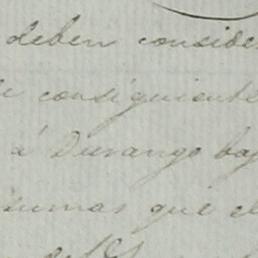 deben conside
consiguiente
á Durango baj
sumas que el